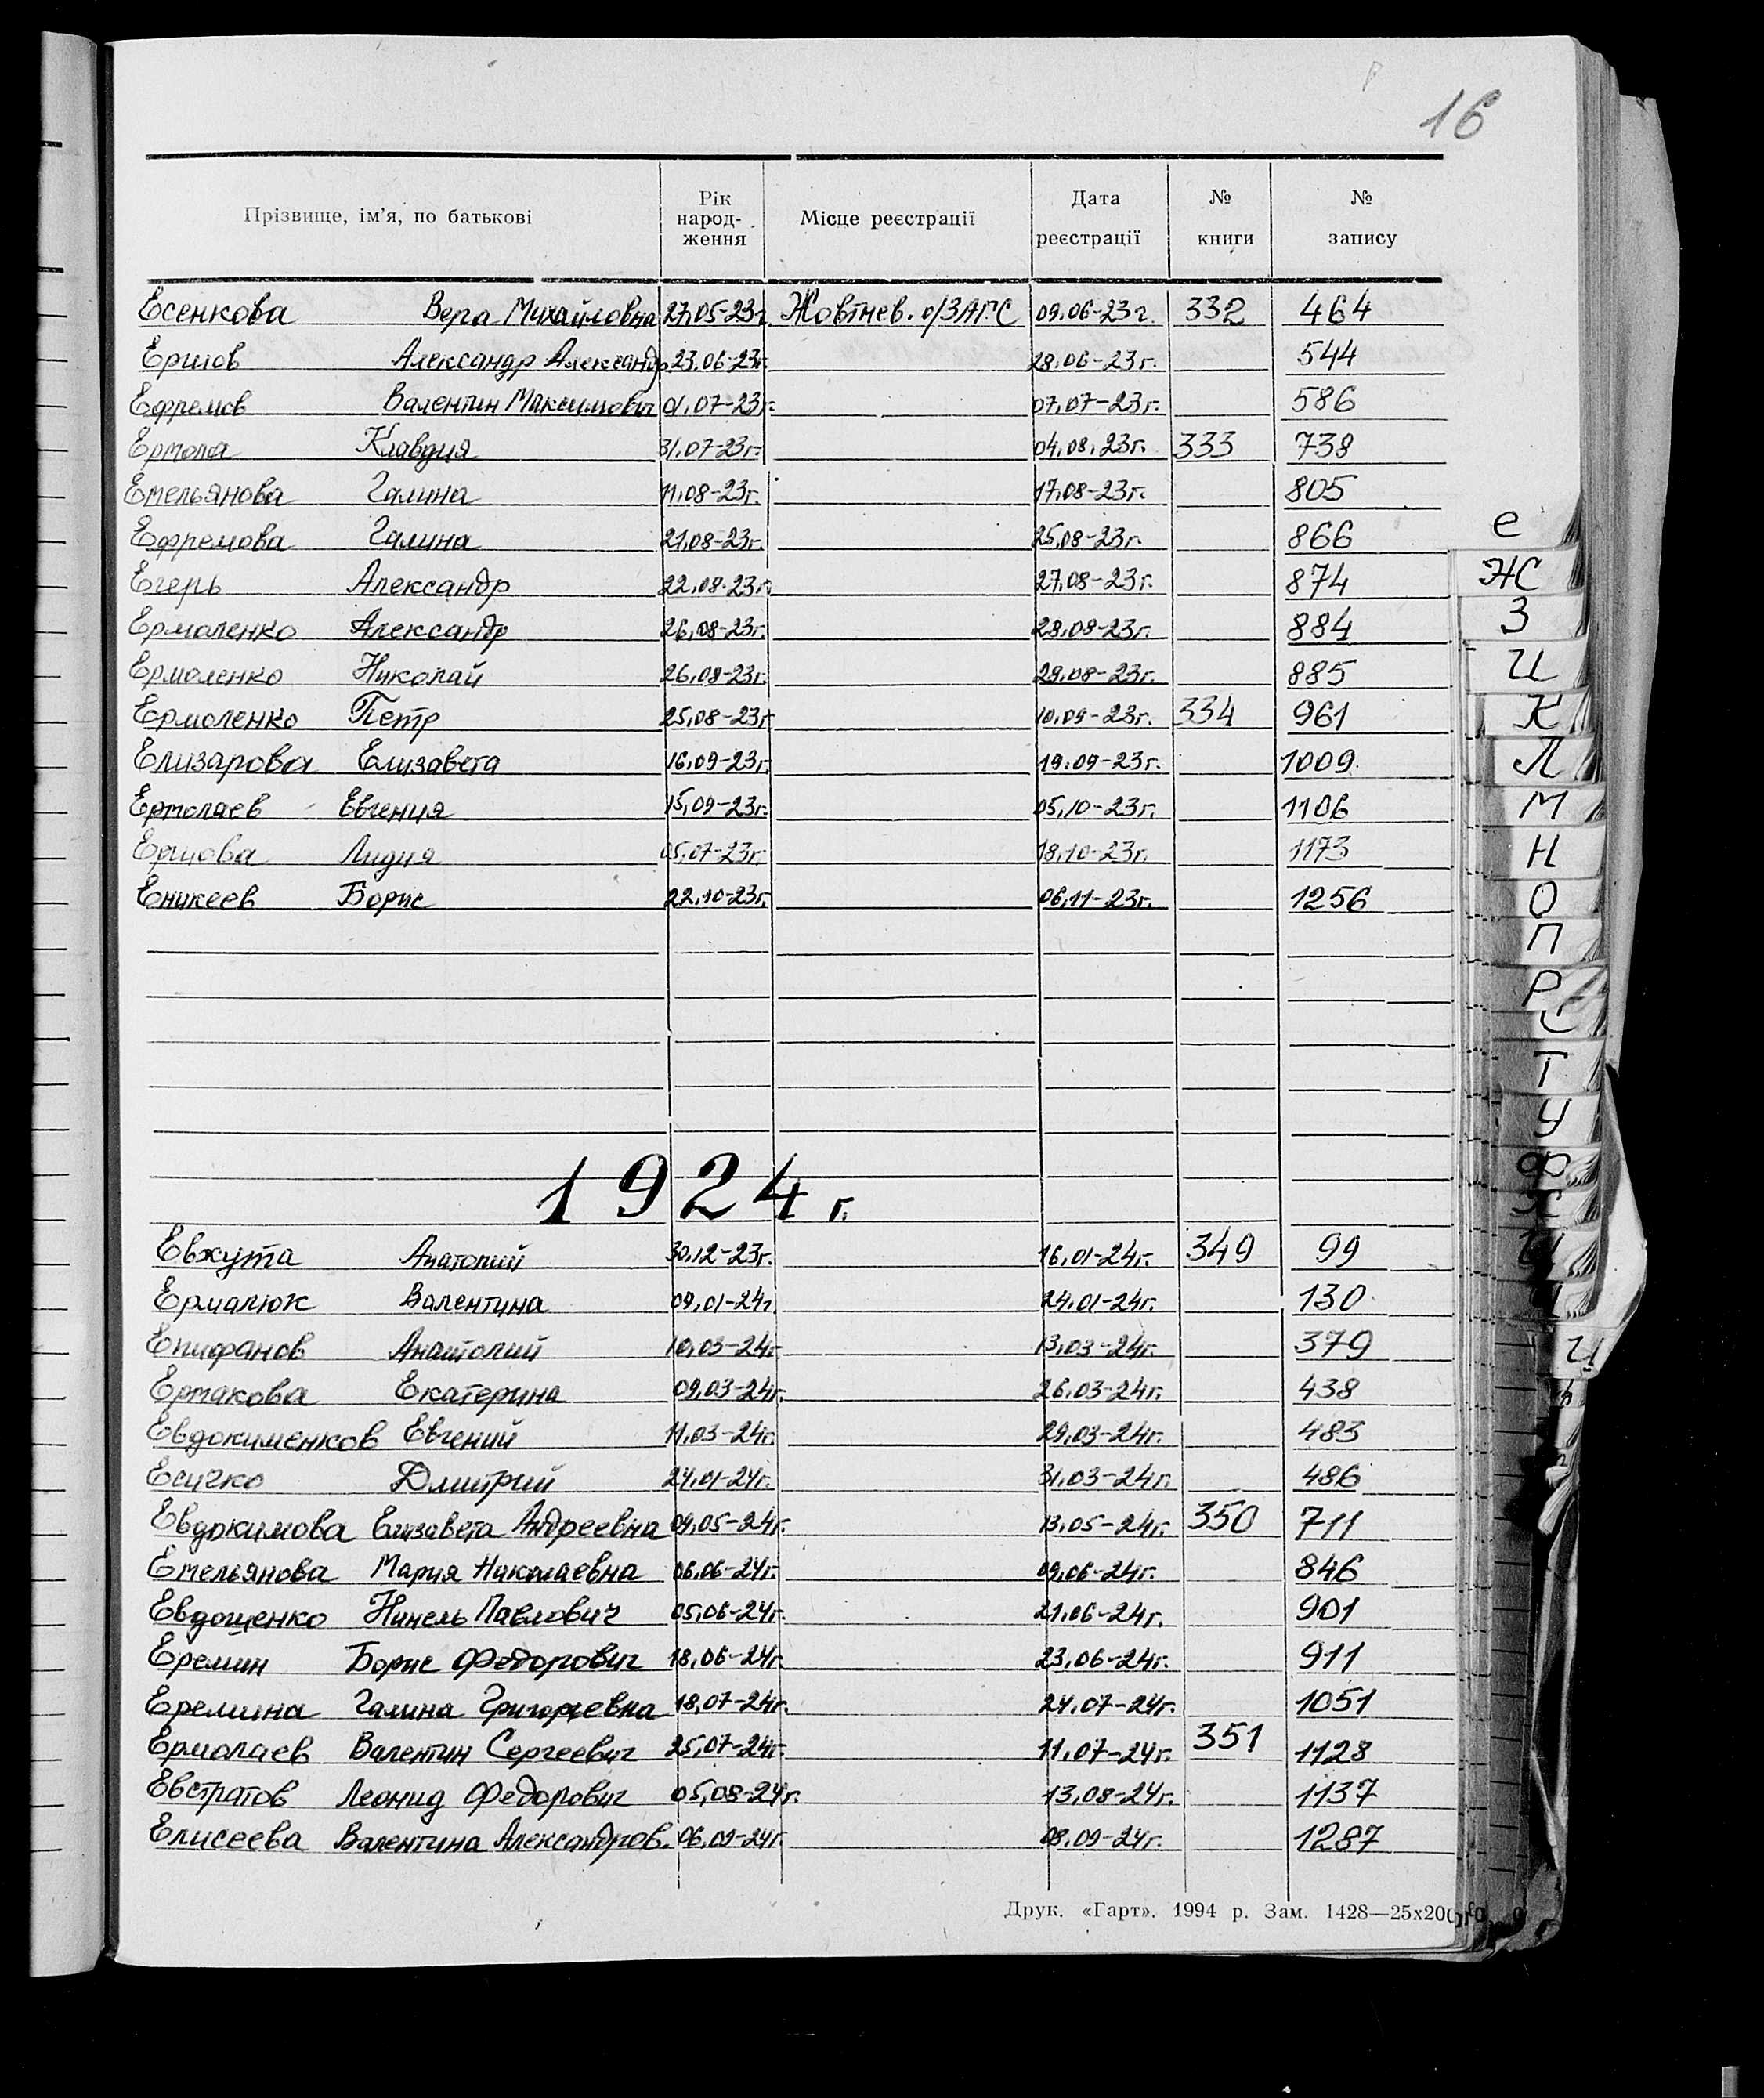 16
Прізвище, ім’я, по батькові Рік народ-ження Місце реєстрації Дата реєстрації № книги № запису
Есенкова Вера Михайловна 27.05-23г. Жовтнев. о/ЗАГС 09.06-23г. 332 464
Ершов Александр Александр 23.06-23г. 28.06-23г. 544
Ефремов Валентин Максимович 01.07-23г. 07.07-23г. 586
Ермола Клавдия 31.07-23г. 04.08.23г. 333 738
Емельянова Галина 11.08-23г. 17.08-23г. 805
Ефремова Галина 21.08-23г. 25.08-23г. 866
Егерь Александр 22.08.23г. 27.08-23г. 874
Ермоленко Александр 26.08-23г. 28.08-23г. 884
Ермоленко Николай 26.08-23г. 28.08-23г. 885
Ермоленко Петр 25.08-23г. 10.09-23г. 334 961
Елизарова Елизавета 16.09-23г. 19.09-23г. 1009
Ермолаев Евгения 15.09-23г. 05.10-23г. 1106
Ершова Лидия 05.07-23г. 18.10-23г. 1173
Еникеев Борис 22.10-23г. 06.11-23г. 1256
1924 г.
Евжута Анатолий 30.12-23г. 16.01-24г. 349 99
Ермалюк Валентина 09.01-24г. 24.01-24г. 130
Епифанов Анатолий 10.03-24г. 13.03-24г. 379
Ермакова Екатерина 09.03-24г. 26.03-24г. 438
Евдокименков Евгений 11.03-24г. 29.03-24г. 483
Есичко Дмитрий 24.01-24г. 31.03-24г. 486
Евдокимова Елизавета Андреевна 04.05-24г. 13.05-24г. 350 711
Емельянова Мария Николаевна 06.06-24г. 09.06-24г. 846
Евдощенко Нинель Павлович 05.06-24г. 21.06-24г. 901
Еремин Борис Федорович 18.06-24г. 23.06-24г. 911
Еремина Галина Григорьевна 18.07-24г. 24.07-24г. 1051
Ермолаев Валентин Сергеевич 25.07-24г. 11.07-24г. 351 1128
Евстратов Леонид Федорович 05.08-24г. 13.08-24г. 1137
Елисеева Валентина Александров. 06.09-24г. 08.09-24г. 1287
Друк. «Гарт». 1994 р. Зам. 1428—25х200
е
Ж
З
И
К
Л
М
Н
О
П
Р
С
Т
У
Ф